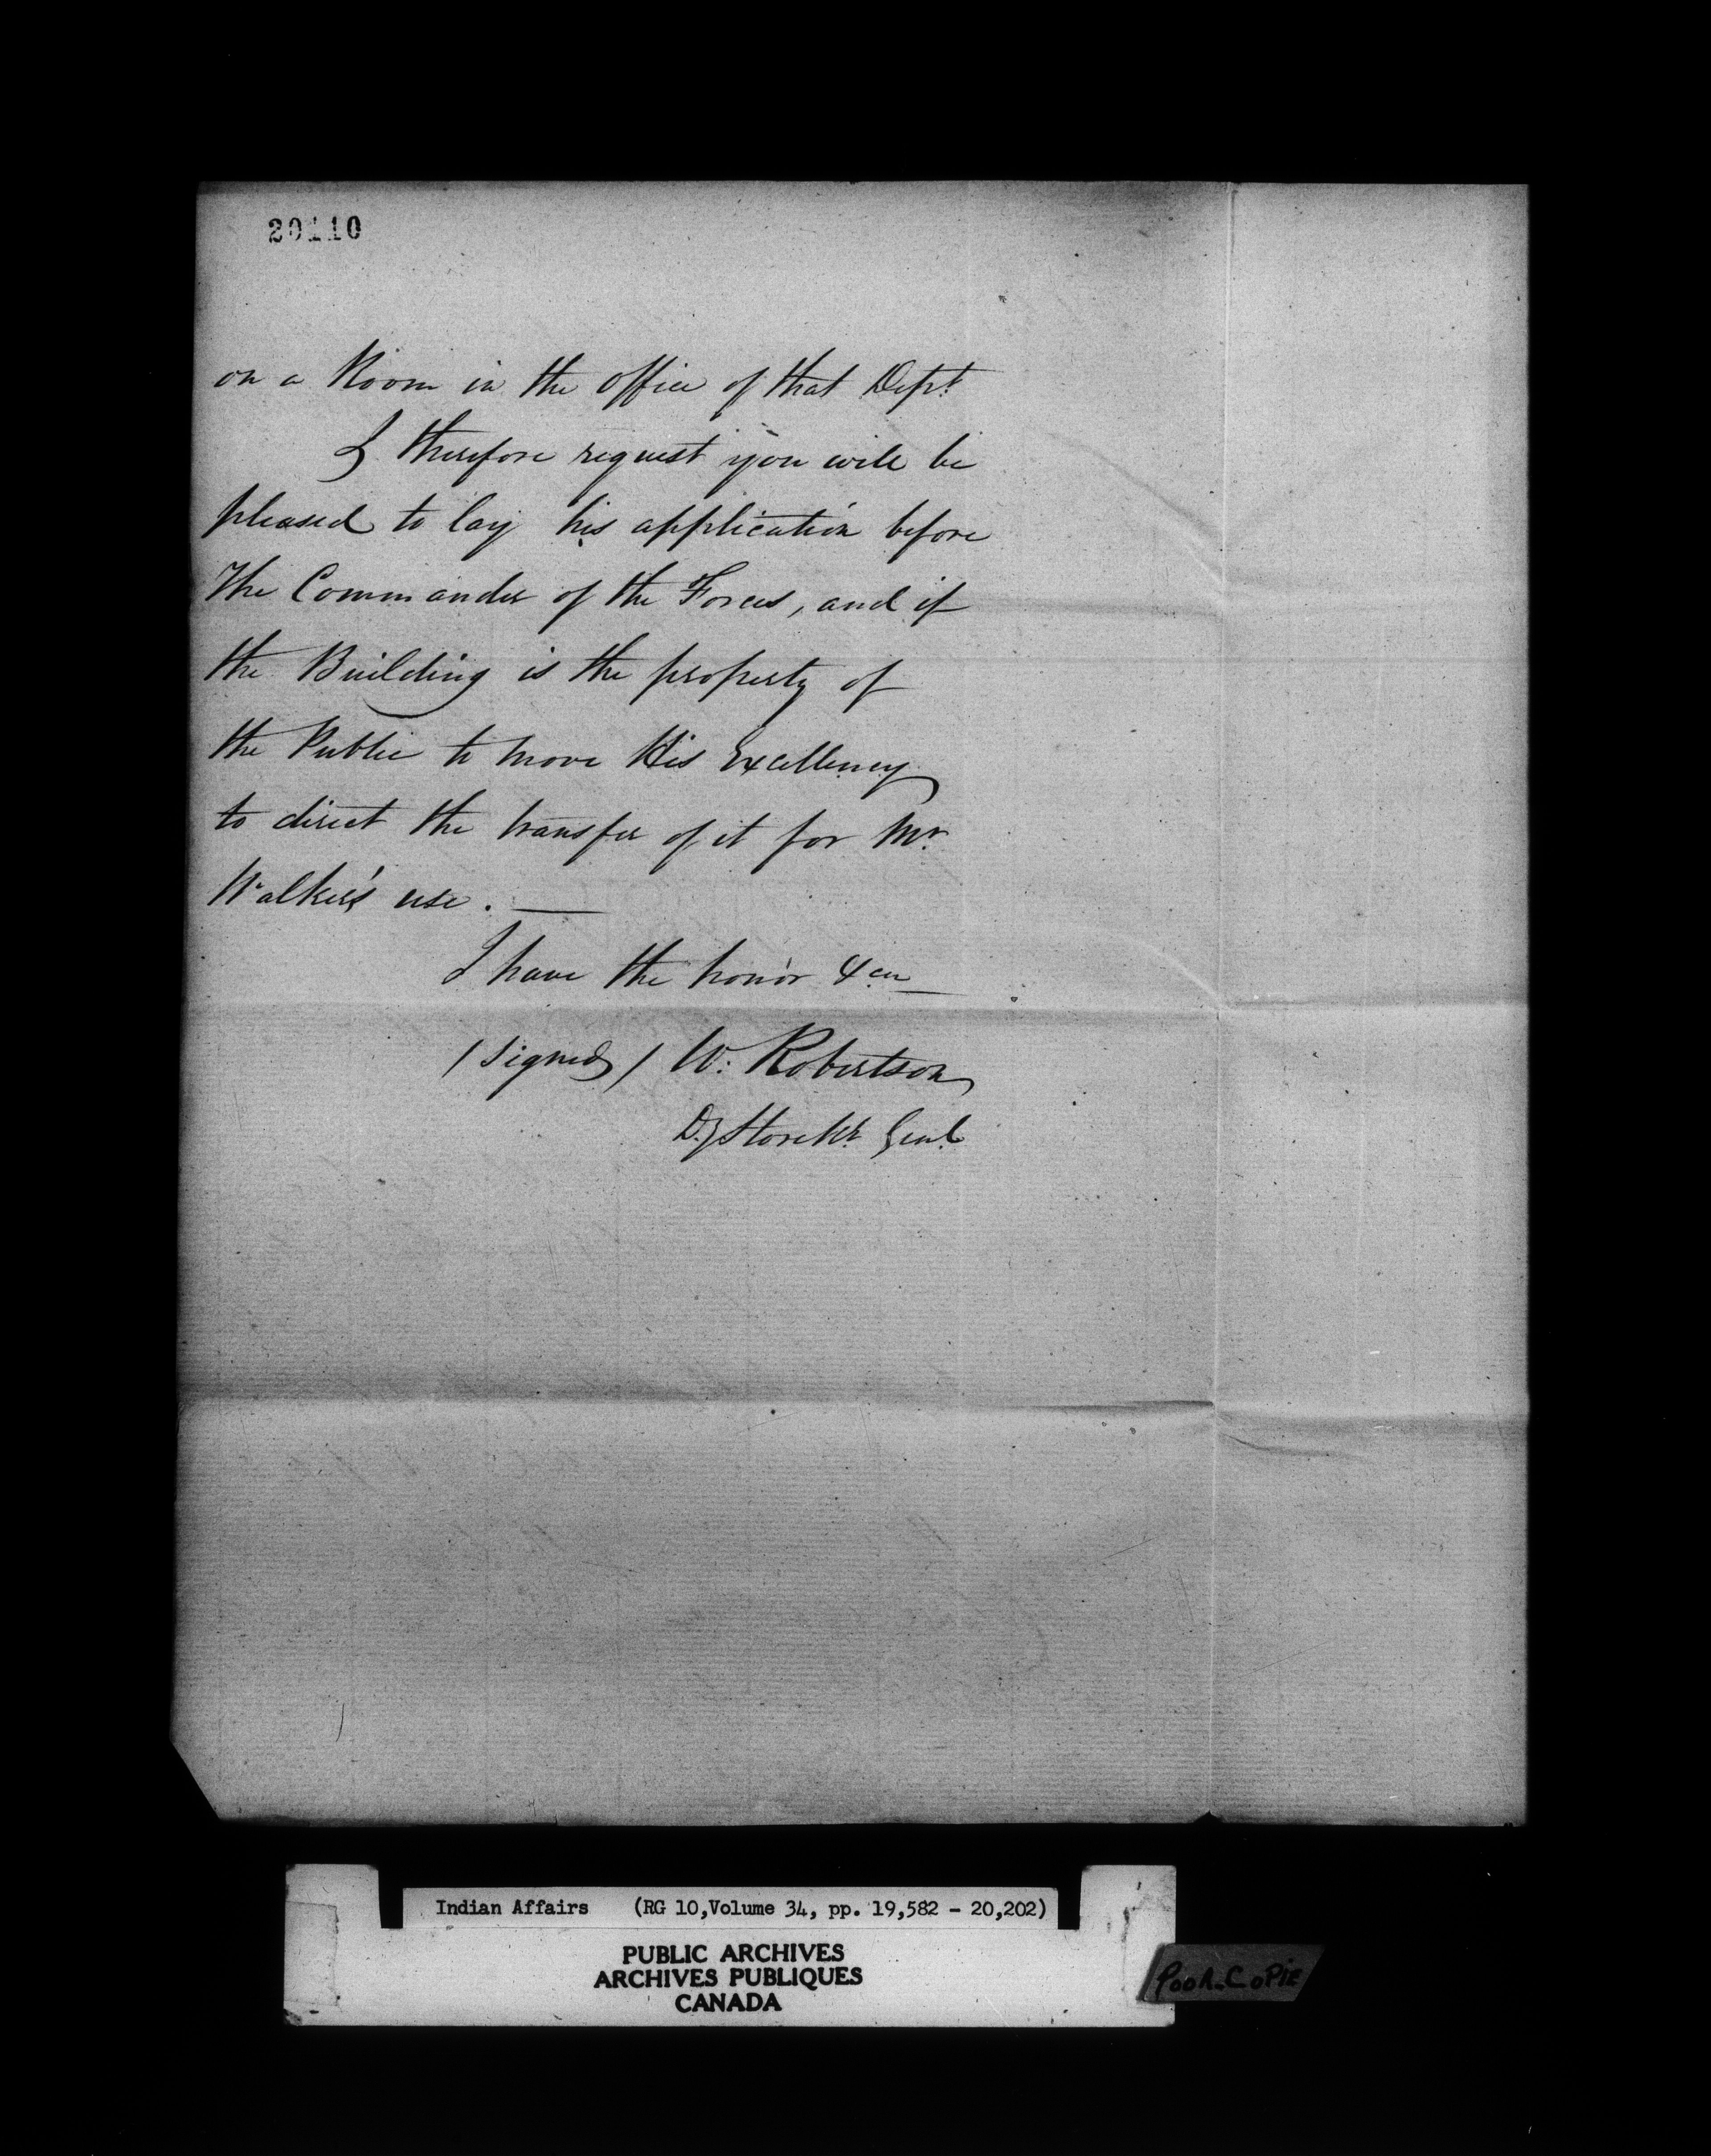 20110
on a Room in the office of that Dept.
I therefore request you will be
pleased to lay his application before
The Commander of the Forces, and if
the Building is the property of
the Public to move His Excellency
to direct the transfer of it for Mr.
Walker's use. —
I have the honor &ca
/ signed / W: Robertson
Dy Storekr. Genl.
Indian Affairs (RG 10, Volume 34, pp. 19,582 - 20,202)
PUBLIC ARCHIVES
ARCHIVES PUBLIQUES
CANADA
POOR-COPIE